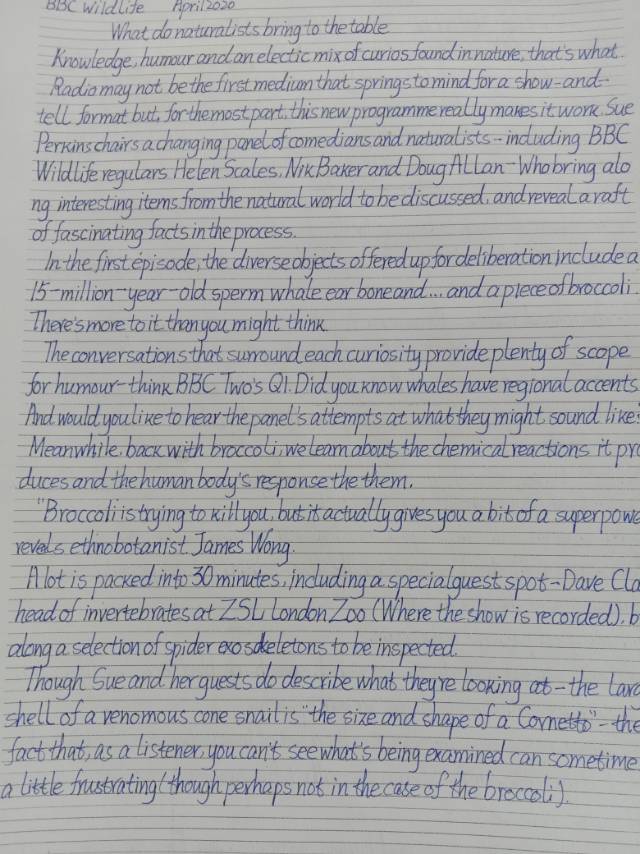 BBC Wildlife April 2020
What do naturalists bring to the table
Knowledge, humour and an electic mix of curios found in nature, that's what.
Radio may not be the first medium that springs to mind for a show-and-
tell format but, for the most part, this new programme really makes it work. Sue
Perkins chairs a changing panel of comedians and naturalists - including BBC
Wildlife regulars Helen Scales, Nik Baker and Doug Allan - Who bring alo
ng interesting items from the natural world to be discussed, and reveal a raft
of fascinating facts in the process.
In the first episode, the diverse objects offered up for deliberation include a
15-million-year-old sperm whale ear bone and... and a piece of broccoli.
There's more to it than you might think.
The conversations that surround each curiosity provide plenty of scope
for humour - think BBC Two's QI. Did you know whales have regional accents
And would you like to hear the panel's attempts at what they might sound like?
Meanwhile, back with broccoli, we learn about the chemical reactions it pro
duces and the human body's response the them.
"Broccoli is trying to kill you, but it actually gives you a bit of a superpowe
revels ethnobotanist James Wong.
A lot is packed into 30 minutes, including a special guest spot - Dave Cla
head of invertebrates at ZSL London Zoo (Where the show is recorded), b
along a selection of spider exoskeletons to be inspected.
Though Sue and her guests do describe what they're looking at - the larg
shell of a venomous cone snail is "the size and shape of a Cornetto" - the
fact that, as a listener, you can't see what's being examined can sometime
a little frustrating (though perhaps not in the case of the broccoli).